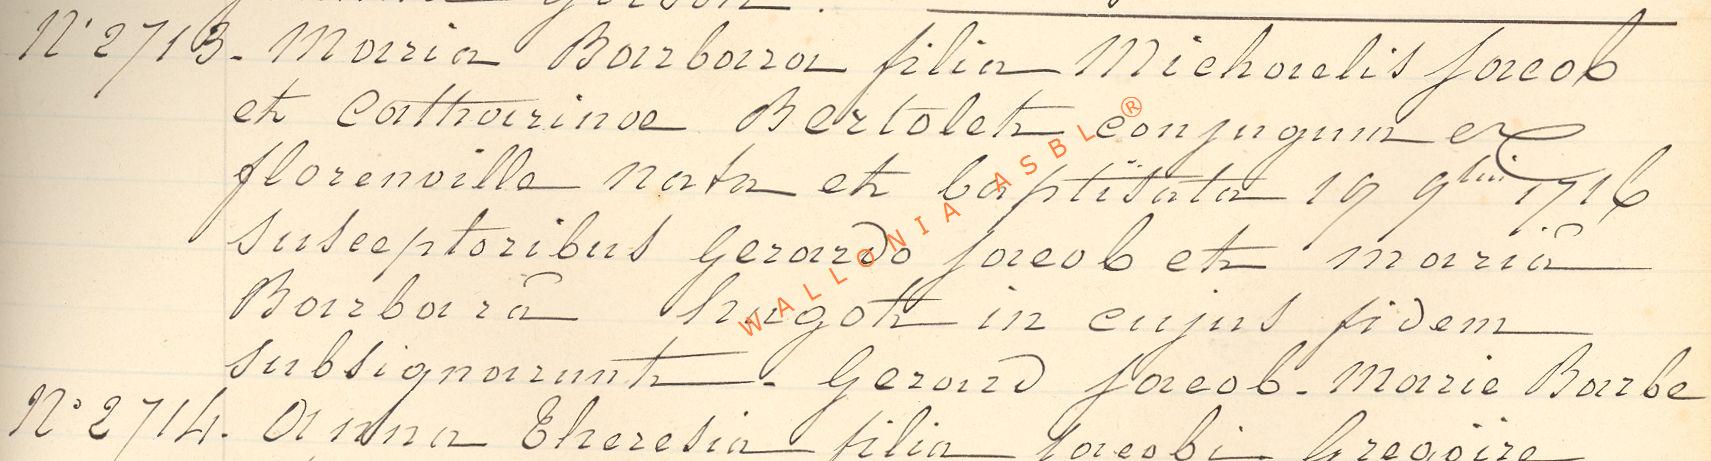 N° 2713. Maria Barbara filia Michaelis Jacob
et Catharinae Bertolet conjugum ex
florenville nata et baptisata 19 9bris 1716
susceptoribus Gerardo Jacob et mariâ
Barbarâ hugot in cujus fidem
subsignarunt. Gerard Jacob. Marie Barbe
N° 2714. Anna Theresia filia Jacobi Gregoire
WALLONIA ASBL ®